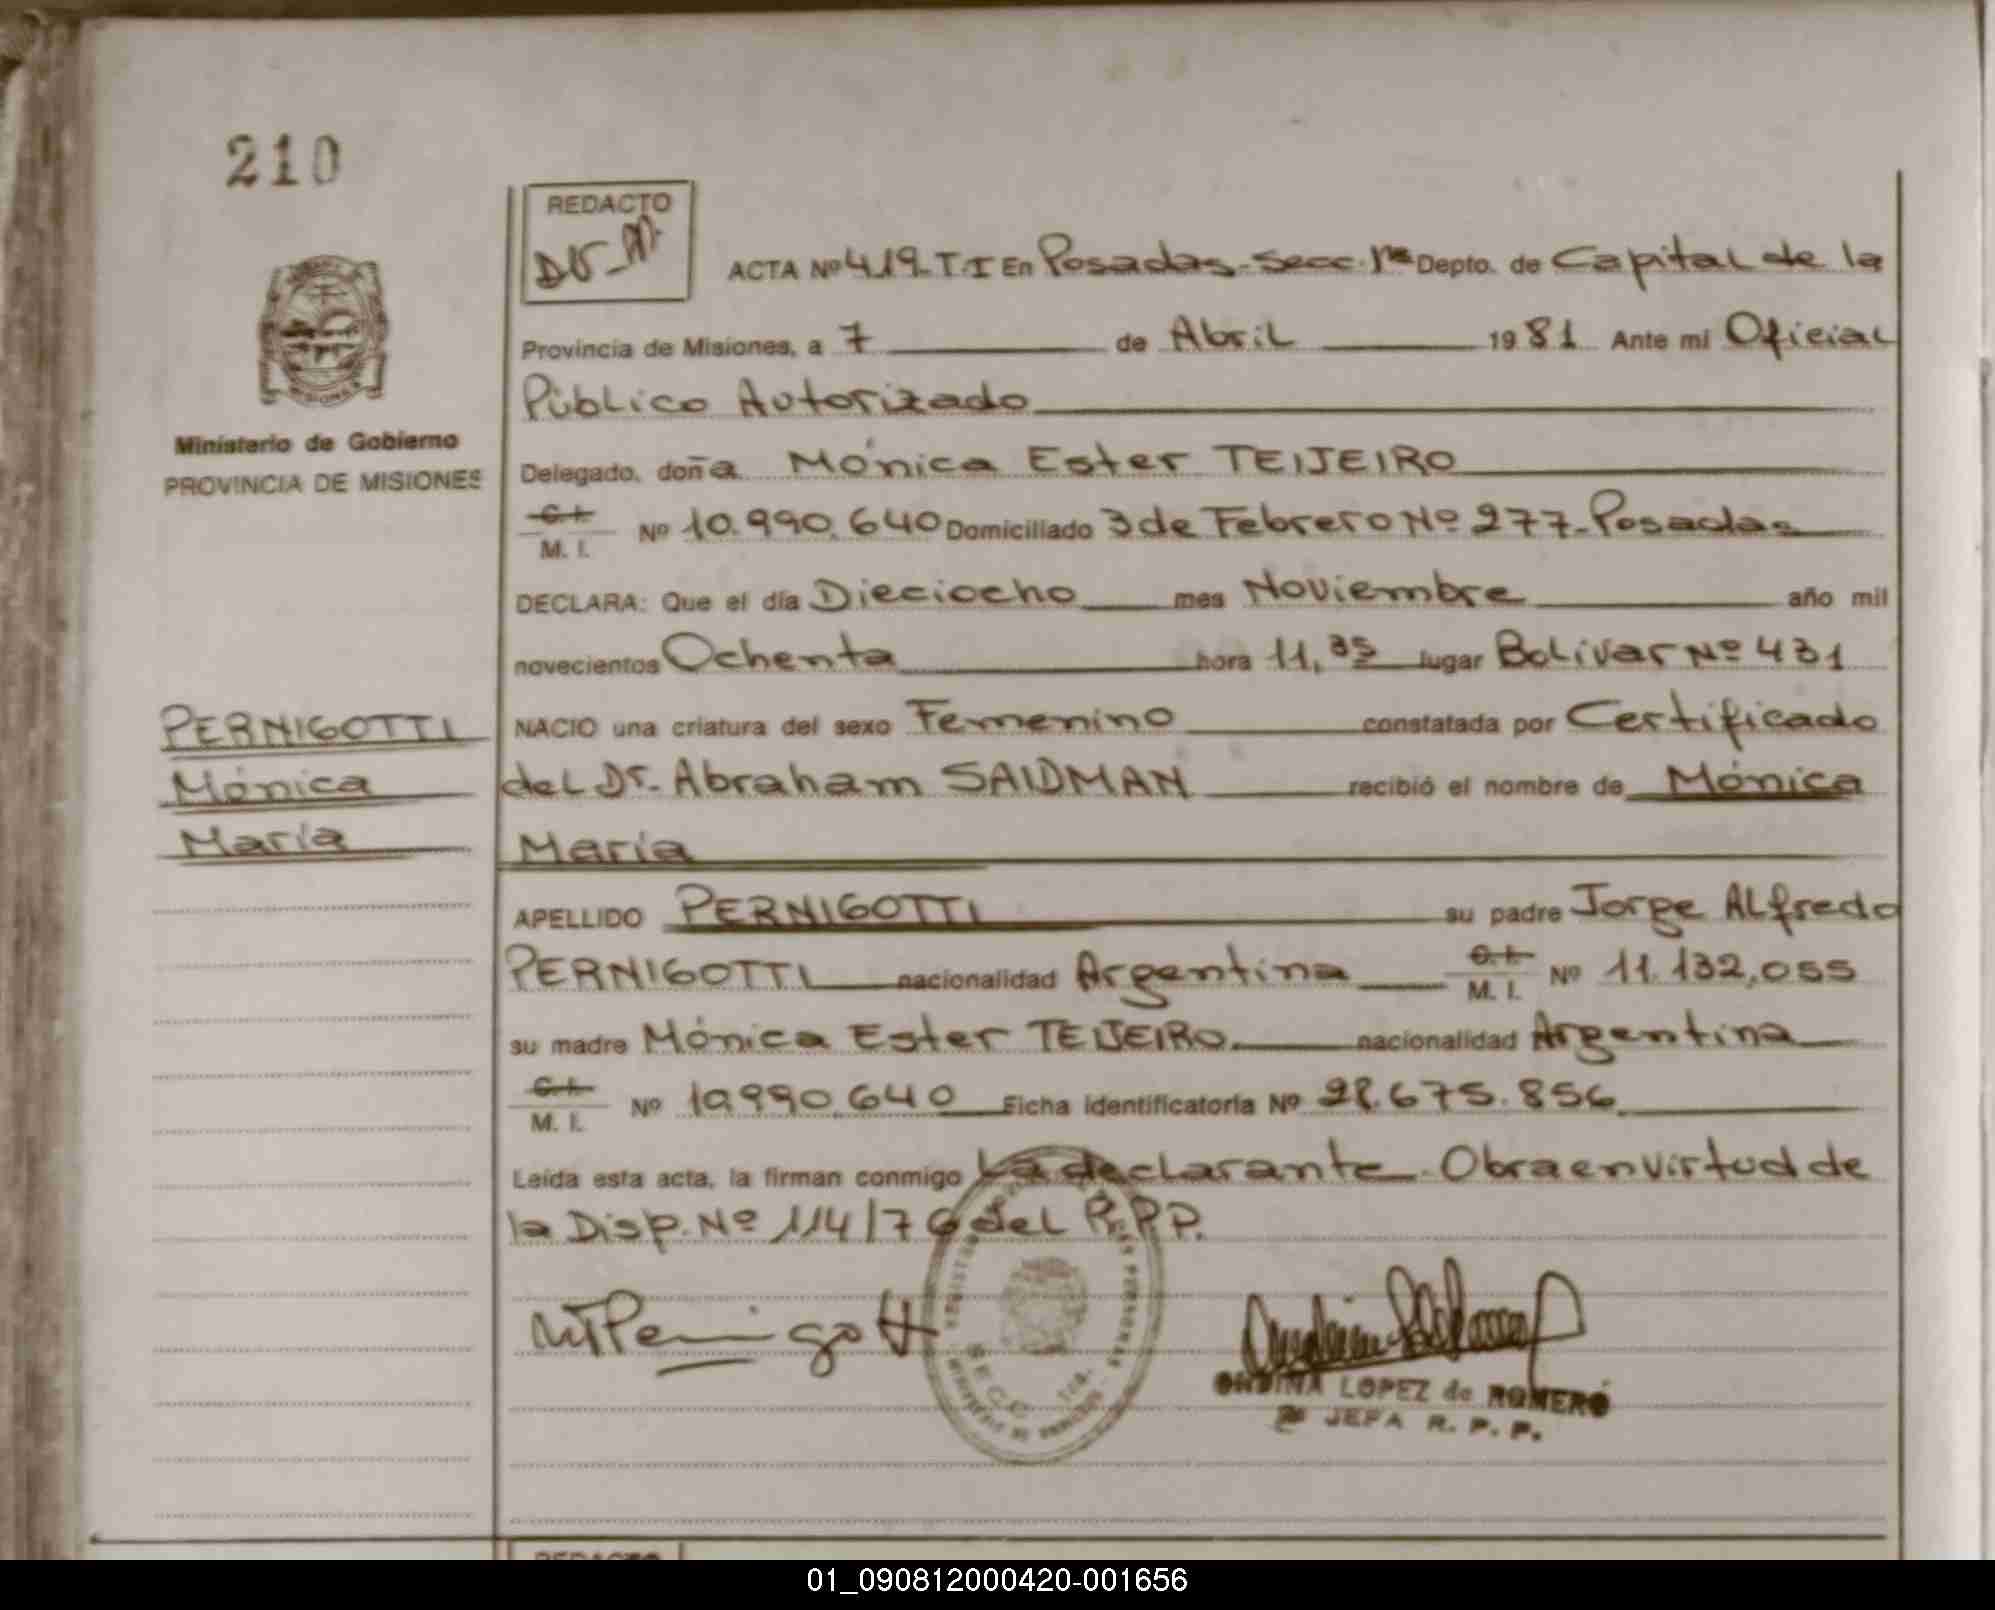 210
REDACTO
ACTA Nº 419-T.I En Posadas-Secc.1ra Depto. de Capital de la
Provincia de Misiones, a 7 de Abril 1981 Ante mi Oficial
Público Autorizado
Ministerio de Gobierno
PROVINCIA DE MISIONES
Delegado, doña Mónica Ester TEIJEIRO
C.I.
M. I. Nº 10.990.640 Domiciliado 3 de Febrero Nº 277-Posadas
DECLARA: Que el día Dieciocho mes Noviembre año mil
novecientos Ochenta hora 11,35 lugar Bolívar Nº 431
PERNIGOTTI
Mónica
María
NACIO una criatura del sexo Femenino constatada por Certificado
del Dr. Abraham SAIDMAN recibió el nombre de Mónica
María
APELLIDO PERNIGOTTI su padre Jorge Alfredo
PERNIGOTTI nacionalidad Argentina C.I. M. I. Nº 11.132.055
su madre Mónica Ester TEIJEIRO nacionalidad Argentina
C.I.
M. I. Nº 10.990.640 Ficha identificatoria Nº 28.675.856
Leída esta acta, la firman conmigo La declarante. Obra en virtud de
la Disp. Nº 114/76 del R.P.P.
MTPernigotti
SECC 1ra.
ONDINA LOPEZ de ROMERO
2º JEFA R. P. P.
REDACTO
01_090812000420-001656